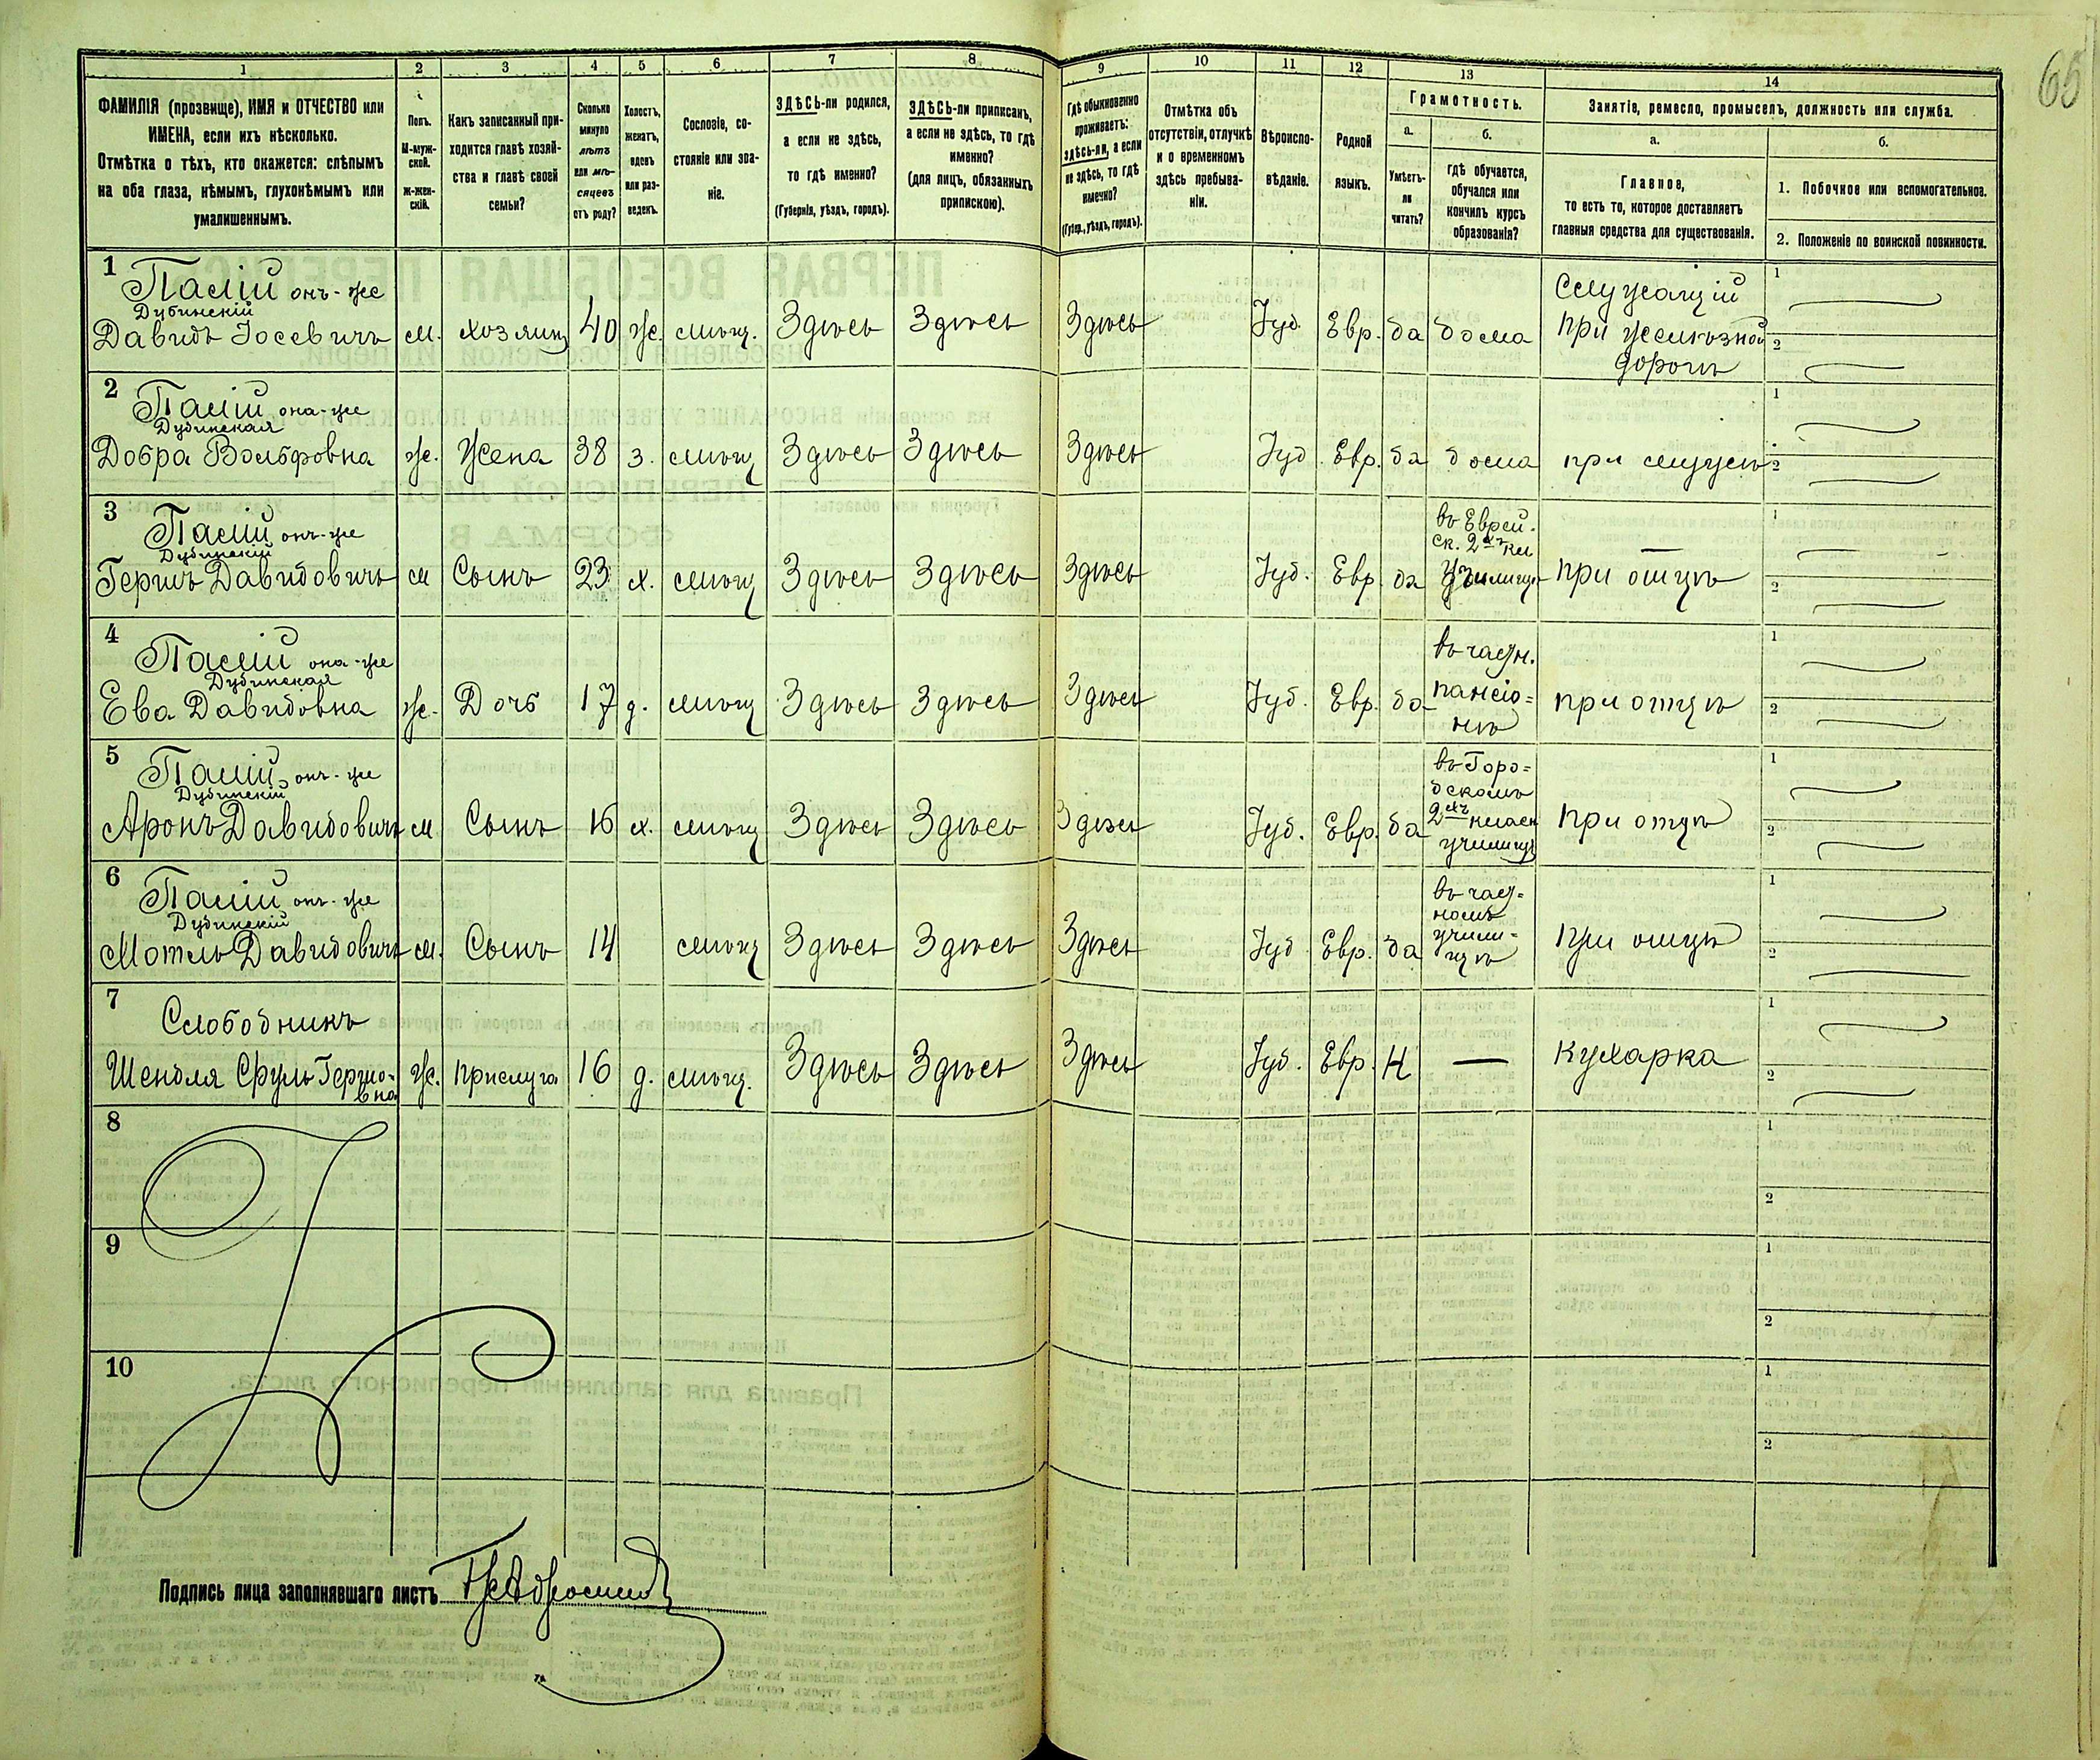 65
1 2 3 4 5 6 7 8 9 10 11 12 13 14
ФАМИЛІЯ (прозвище), ИМЯ и ОТЧЕСТВО или
ИМЕНА, если ихъ нѣсколько.
Отмѣтка о тѣхъ, кто окажется: слѣпымъ
на оба глаза, нѣмымъ, глухонѣмымъ или
умалишеннымъ.
Полъ.
М-муж-
ской.
Ж-жен-
скій.
Какъ записанный при-
ходится главѣ хозяй-
ства и главѣ своей
семьи?
Сколько
минуло
лѣтъ
или мѣ-
сяцевъ
отъ роду?
Холостъ,
женатъ,
вдовъ
или раз-
веденъ.
Сословіе, со-
стояніе или зва-
ніе.
ЗДѢСЬ-ли родился,
а если не здѣсь,
то гдѣ именно?
(Губернія, уѣздъ, городъ).
ЗДѢСЬ-ли приписанъ,
а если не здѣсь, то гдѣ
именно?
(для лицъ, обязанныхъ
припискою).
Гдѣ обыкновенно
проживаетъ:
здѣсь-ли, а если
не здѣсь, то гдѣ
именно?
(Губер., уѣздъ, городъ).
Отмѣтка объ
отсутствіи, отлучкѣ
и о временномъ
здѣсь пребыва-
ніи.
Вѣроиспо-
вѣданіе.
Родной
языкъ.
Грамотность.
а.
Умѣетъ-
ли
читать?
б.
гдѣ обучается,
обучался или
кончилъ курсъ
образованія?
Занятіе, ремесло, промыселъ, должность или служба.
а.
Главное,
то есть то, которое доставляетъ
главныя средства для существованія.
б.
1. Побочное или вспомогательное.
2. Положеніе по воинской повинности.
1
Палій онъ-же
Дубинскій
Давидъ Іосевичъ м. хозяинъ 40 ж. мѣщ. Здѣсь Здѣсь Здѣсь Іуд. Евр. да дома
Служащій
при желѣзной
дорогѣ
1
2
2
Палій она-же
Дубинская
Добра Вольфовна ж. Жена 38 з. мѣщ Здѣсь Здѣсь Здѣсь Іуд. Евр. да дома при мужѣ
1
2
3
Палій онъ-же
Дубинскій
Гершъ Давидовичъ м Сынъ 23 х. мѣщ Здѣсь Здѣсь Здѣсь Іуд. Евр. да
въ Еврей.
ск. 2хъ кл
училищѣ
при отцѣ
1
2
4
Палій она-же
Дубинская
Ева Давидовна ж. Дочь 17 д. мѣщ Здѣсь Здѣсь Здѣсь Іуд. Евр. да
въ частн.
пансіо=
нѣ
при отцѣ
1
2
5
Палій онъ-же
Дубинскій
Аронъ Давидовичъ м. Сынъ 16 х. мѣщ Здѣсь Здѣсь Здѣсь Іуд. Евр. да
въ Горо=
дскомъ
2хъ класн
училищѣ
при отцѣ
1
2
6
Палій онъ-же
Дубинскій
Мотель Давидовичъ м. Сынъ 14 мѣщ Здѣсь Здѣсь Здѣсь Іуд. Евр. да
въ част=
номъ
учили=
щѣ
при отцѣ
1
2
7
Слободникъ
Шендля Сруль Гершо-
вна
ж. прислуга 16 д. мѣщ. Здѣсь Здѣсь Здѣсь Іуд. Евр. Н — кухарка
1
2
8
1
2
9
1
2
10
1
2
Подпись лица заполнявшаго листъ